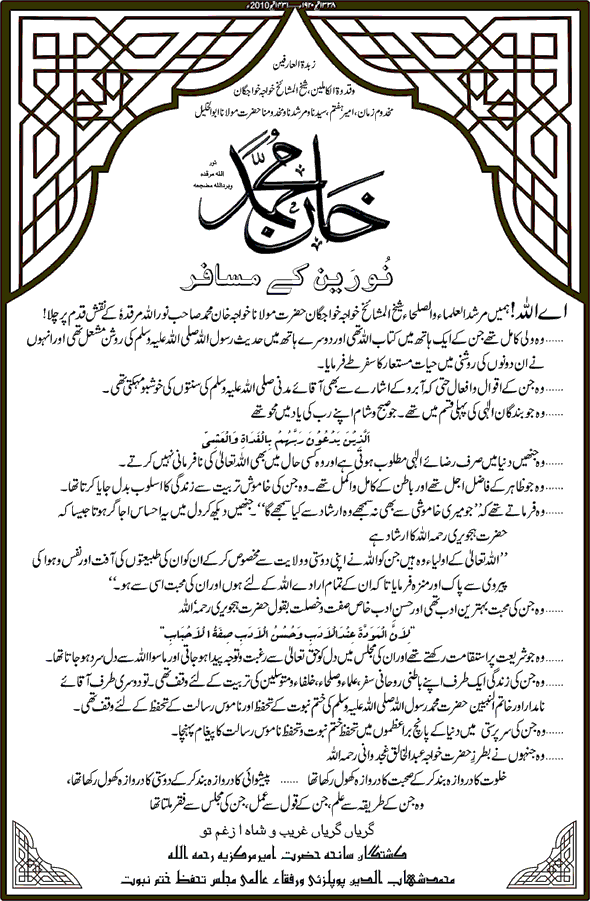 ۱۳۳۸ھ ۱۹۲۰ء ــــ ۱۴۳۱ھ 2010ء
زبدۃ العارفین
وقدوۃ الکاملین، شیخ المشائخ خواجہ خواجگان
مخدوم زمان، امیر ہفتم، سیدنا و مرشدنا و مخدومنا حضرت مولانا ابوالخلیل
خان محمدؒ
نور اللہ مرقدہ وبرداللہ مضجعہ
نُورَین کے مسافر
اے اللہ! ہمیں مرشد العلماء والصلحاء، شیخ المشائخ خواجہ خواجگان حضرت مولانا خواجہ خان محمد صاحب نور اللہ مرقدہٗ کے نقش قدم پر چلا!
......وہ ولی کامل تھے جن کے ایک ہاتھ میں کتاب اللہ تھی اور دوسرے ہاتھ میں حدیث رسول اللہ صلی اللہ علیہ وسلم کی روشن مشعل تھی اور انہوں
نے ان دونوں کی روشنی میں حیات مستعار کا سفر طے فرمایا۔
......وہ جن کے اقوال وافعال حتی کہ آبرو کے اشارے سے بھی آقائے مدنی صلی اللہ علیہ وسلم کی سنتوں کی خوشبو مہکتی تھی۔
......وہ جو بندگان الٰہی کی پہلی قسم میں تھے۔ جو صبح و شام اپنے رب کی یاد میں محو تھے
اَلَّذِیْنَ یَدْعُوْنَ رَبَّہُمْ بِالْغَدَاۃِ وَالْعَشِیِّ
......وہ جنھیں دنیا میں صرف رضائے الٰہی مطلوب ہوتی ہے اور وہ کسی حال میں بھی اللہ تعالیٰ کی نافرمانی نہیں کرتے۔
......وہ جو ظاہر کے فاضل اجل تھے اور باطن کے کامل واکمل تھے۔ وہ جن کی خاموش تربیت سے زندگی کا اسلوب بدل جایا کرتا تھا۔
......وہ فرماتے تھے کہ ”جو میری خاموشی سے بھی نہ سمجھے وہ ارشاد سے کیا سمجھے گا“۔ جنھیں دیکھ کر دل میں یہ احساس اجاگر ہوتا جیسا کہ
حضرت ہجویری رحمہ اللہ کا ارشاد ہے
”اللہ تعالیٰ کے اولیاء وہ ہیں جن کو اللہ نے اپنی دوستی و ولایت سے مخصوص کر کے ان کو ان کی طبیعتوں کی آفت اور نفس وہوا کی
پیروی سے پاک اور منزہ فرمایا تا کہ ان کے تمام ارادے اللہ کے لئے ہوں اور ان کی محبت اسی سے ہو۔“
......وہ جن کی محبت بہترین ادب تھی اور حسن ادب خاص صفت و خصلت بقول حضرت ہجویری رحمہٗ اللہ
”لِاَنَّ الْمَوَدَّۃَ عِنْدَ الْاَدَبِ وَحُسْنُ الْاَدَبِ صِفَۃُ الْاَحْبَابِ“
......وہ جو شریعت پر استقامت رکھتے تھے اور ان کی مجلس میں دل کو حق تعالیٰ سے رغبت و توجہ پیدا ہو جاتی اور ماسوا اللہ سے دل سرد ہو جاتا تھا۔
......وہ جن کی زندگی ایک طرف اپنے باطنی روحانی سفر، علماء وصلحاء، خلفاء ومتوسلین کی تربیت کے لئے وقف تھی۔ تو دوسری طرف آقائے
نامدار اور خاتم النبیین حضرت محمد رسول اللہ صلی اللہ علیہ وسلم کی ختم نبوت کے تحفظ اور ناموس رسالت کے تحفظ کے لئے وقف تھی۔
......وہ جن کی سرپرستی میں دنیا کے پانچ براعظموں میں تحفظ ختم نبوت و تحفظ ناموس رسالت کا پیغام پہنچا۔
......وہ جنہوں نے بطرز حضرت خواجہ عبدالخالق غجدوانی رحمہ اللہ
خلوت کا دروازہ بند کر کے صحبت کا دروازہ کھول رکھا تھا ...... پیشوائی کا دروازہ بند کر کے دوستی کا دروازہ کھول رکھا تھا،
وہ جن کے طریقہ سے علم، جن کے قول سے عمل، جن کی مجلس سے فقر ملتا تھا
گریاں گریاں غریب و شاہ از غم تو
کشتگان سانحہ حضرت امیر مرکزیہ رحمہ اللہ
محمد شہاب الدین پوپلزئی ورفقاء عالمی مجلس تحفظ ختم نبوت